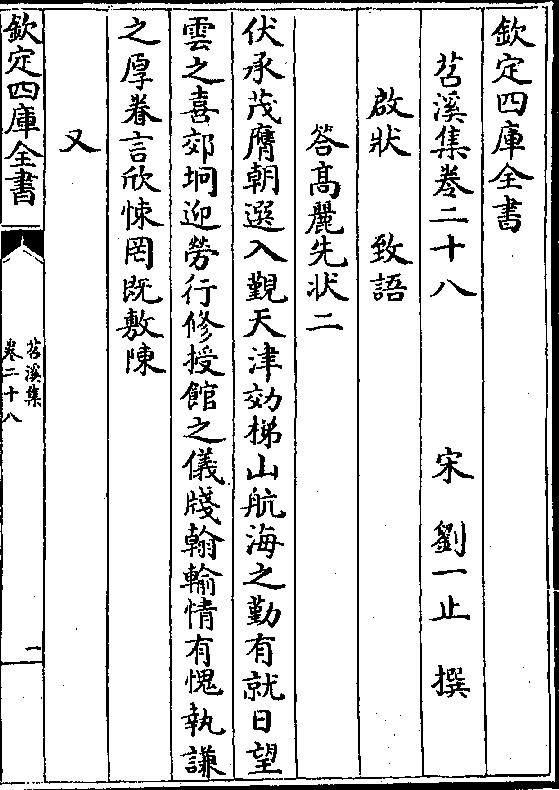 欽定四庫全書
苕溪集卷二十八
宋 劉一止 撰
啟狀 致語
答髙麗先状二
伏承茂膺朝選入覲天津効梯山航海之勤有就日望
雲之喜郊坰迎勞行修授館之儀牋翰輸情有愧執謙
之厚眷言欣悚罔既敷陳
又
欽定四庫全書
苕溪集
卷二十八
一